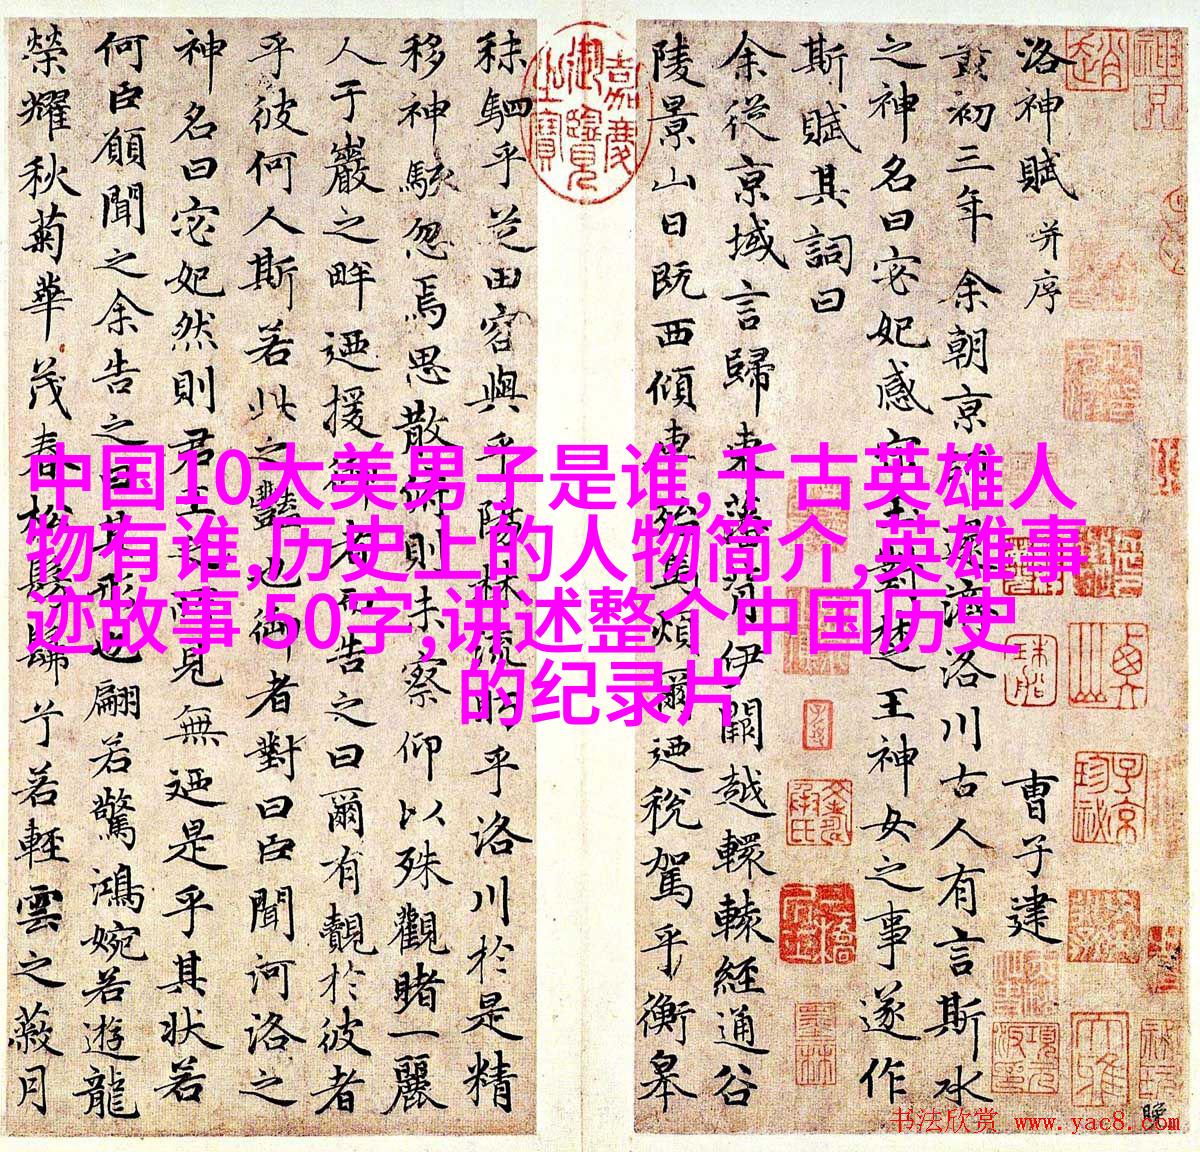 洛神賦 并序
曹子建
黃初三年余朝京師還濟洛川古人有言斯水
之神名曰宓妃感宋玉對楚王神女之事遂作
斯賦其詞曰
余從京域言歸東藩背伊闕越轘轅經通谷
陵景山日既西傾車殆馬煩爾迺稅駕乎衡皋
秣駟乎芝田容與乎陽林流眄乎洛川於是精
移神駭忽焉思散俯則未察仰以殊觀睹一麗
人于巖之畔迺援御者而告之曰爾有覿於彼者
乎彼何人斯若此之豔也御者對曰臣聞河洛之
神名曰宓妃然則君王所見無迺是乎其狀若
何臣願聞之余告之曰其形也翩若驚鴻婉若遊龍
榮耀秋菊華茂春松髣髴兮若輕雲之蔽月
嘉慶御覽之寶
中国10大美男子是谁,千古英雄人
物有谁,历史上的人物简介,英雄事
迹故事 50字,讲述整个中国历史
的纪录片
书法欣赏 www.yac8.com